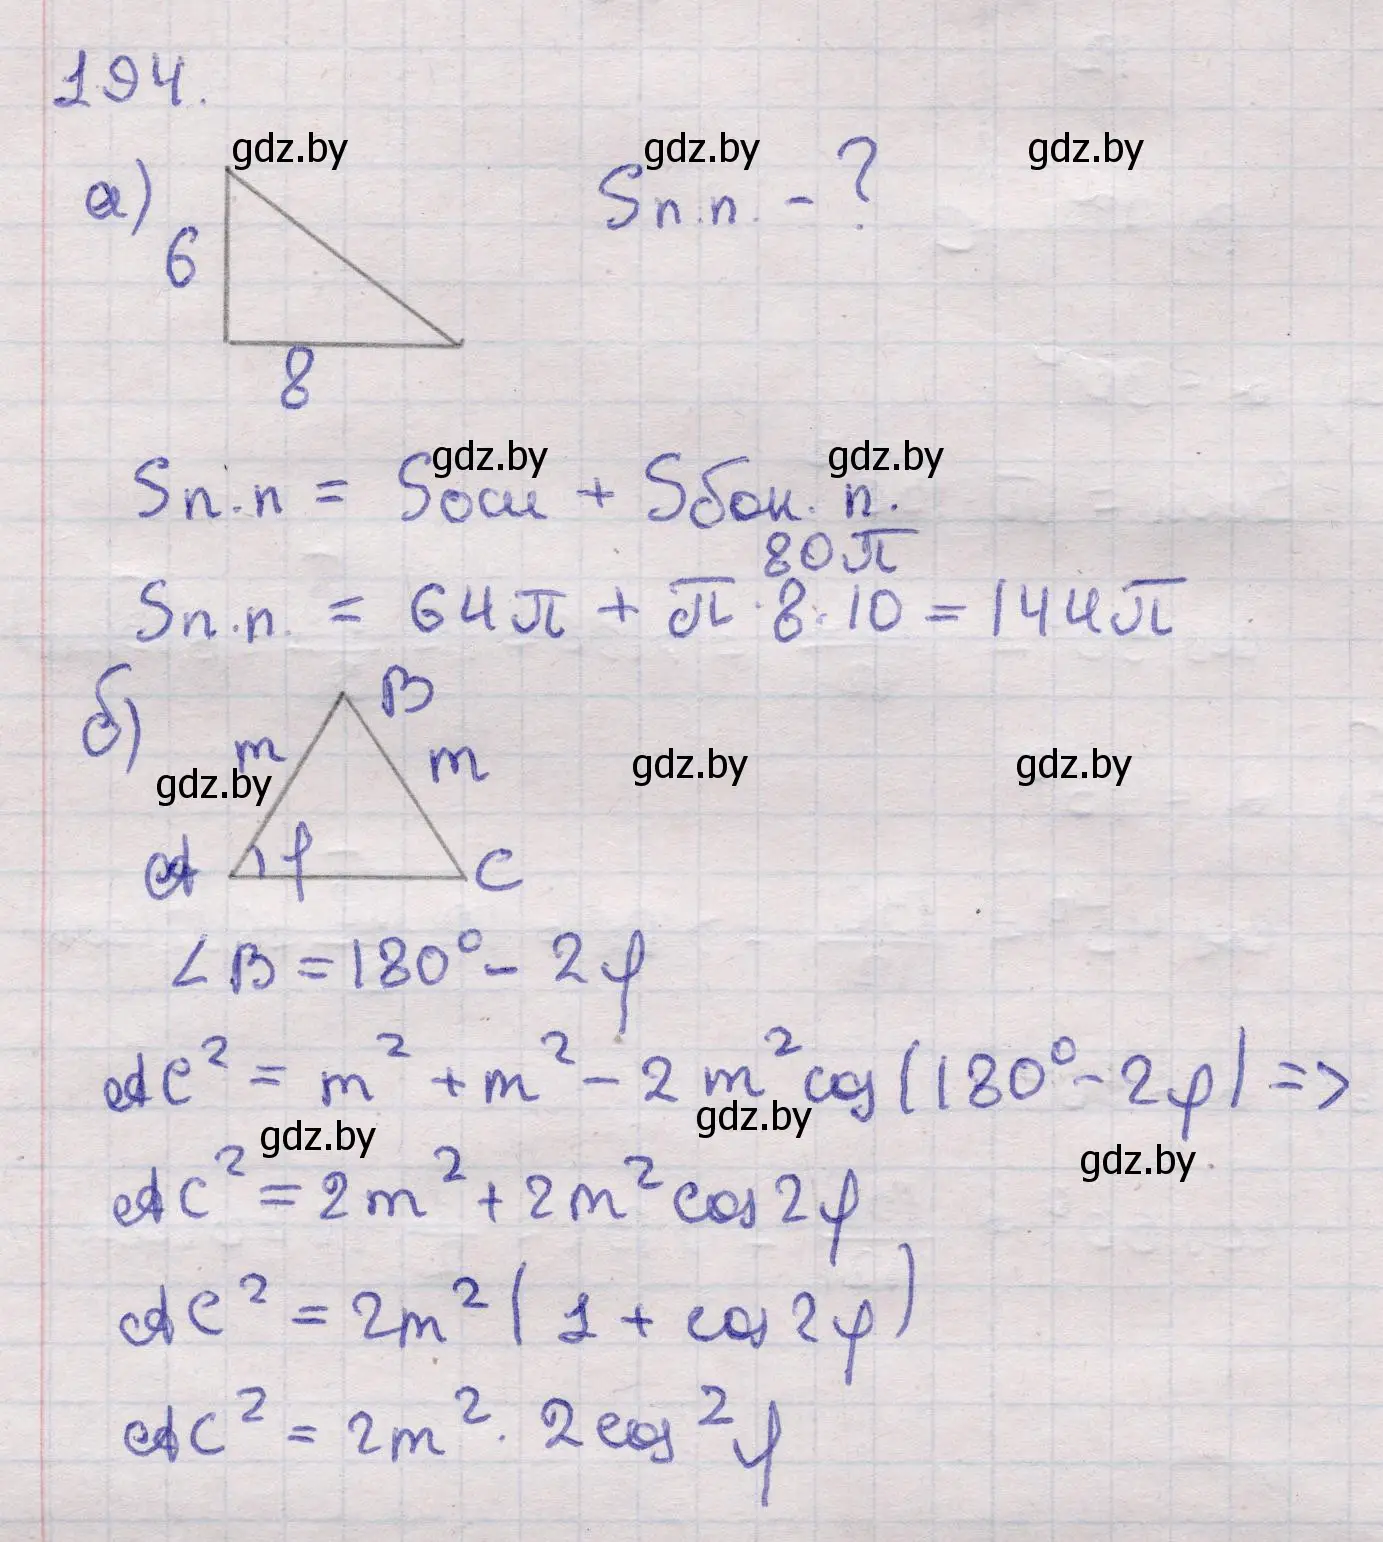 194.
gdz.by gdz.by gdz.by
а) 6 Sп.п. - ?
8
gdz.by gdz.by
Sп.п = Sосн + Sбок. п.
80π
Sп.п. = 64π + π·8·10 = 144π
б) B
m m gdz.by gdz.by
gdz.by
A φ C
∠B = 180° - 2φ
AC² = m² + m² - 2m² cos(180° - 2φ) =>
gdz.by gdz.by gdz.by
AC² = 2m² + 2m² cos 2φ
AC² = 2m² (1 + cos 2φ)
AC² = 2m² · 2cos²φ